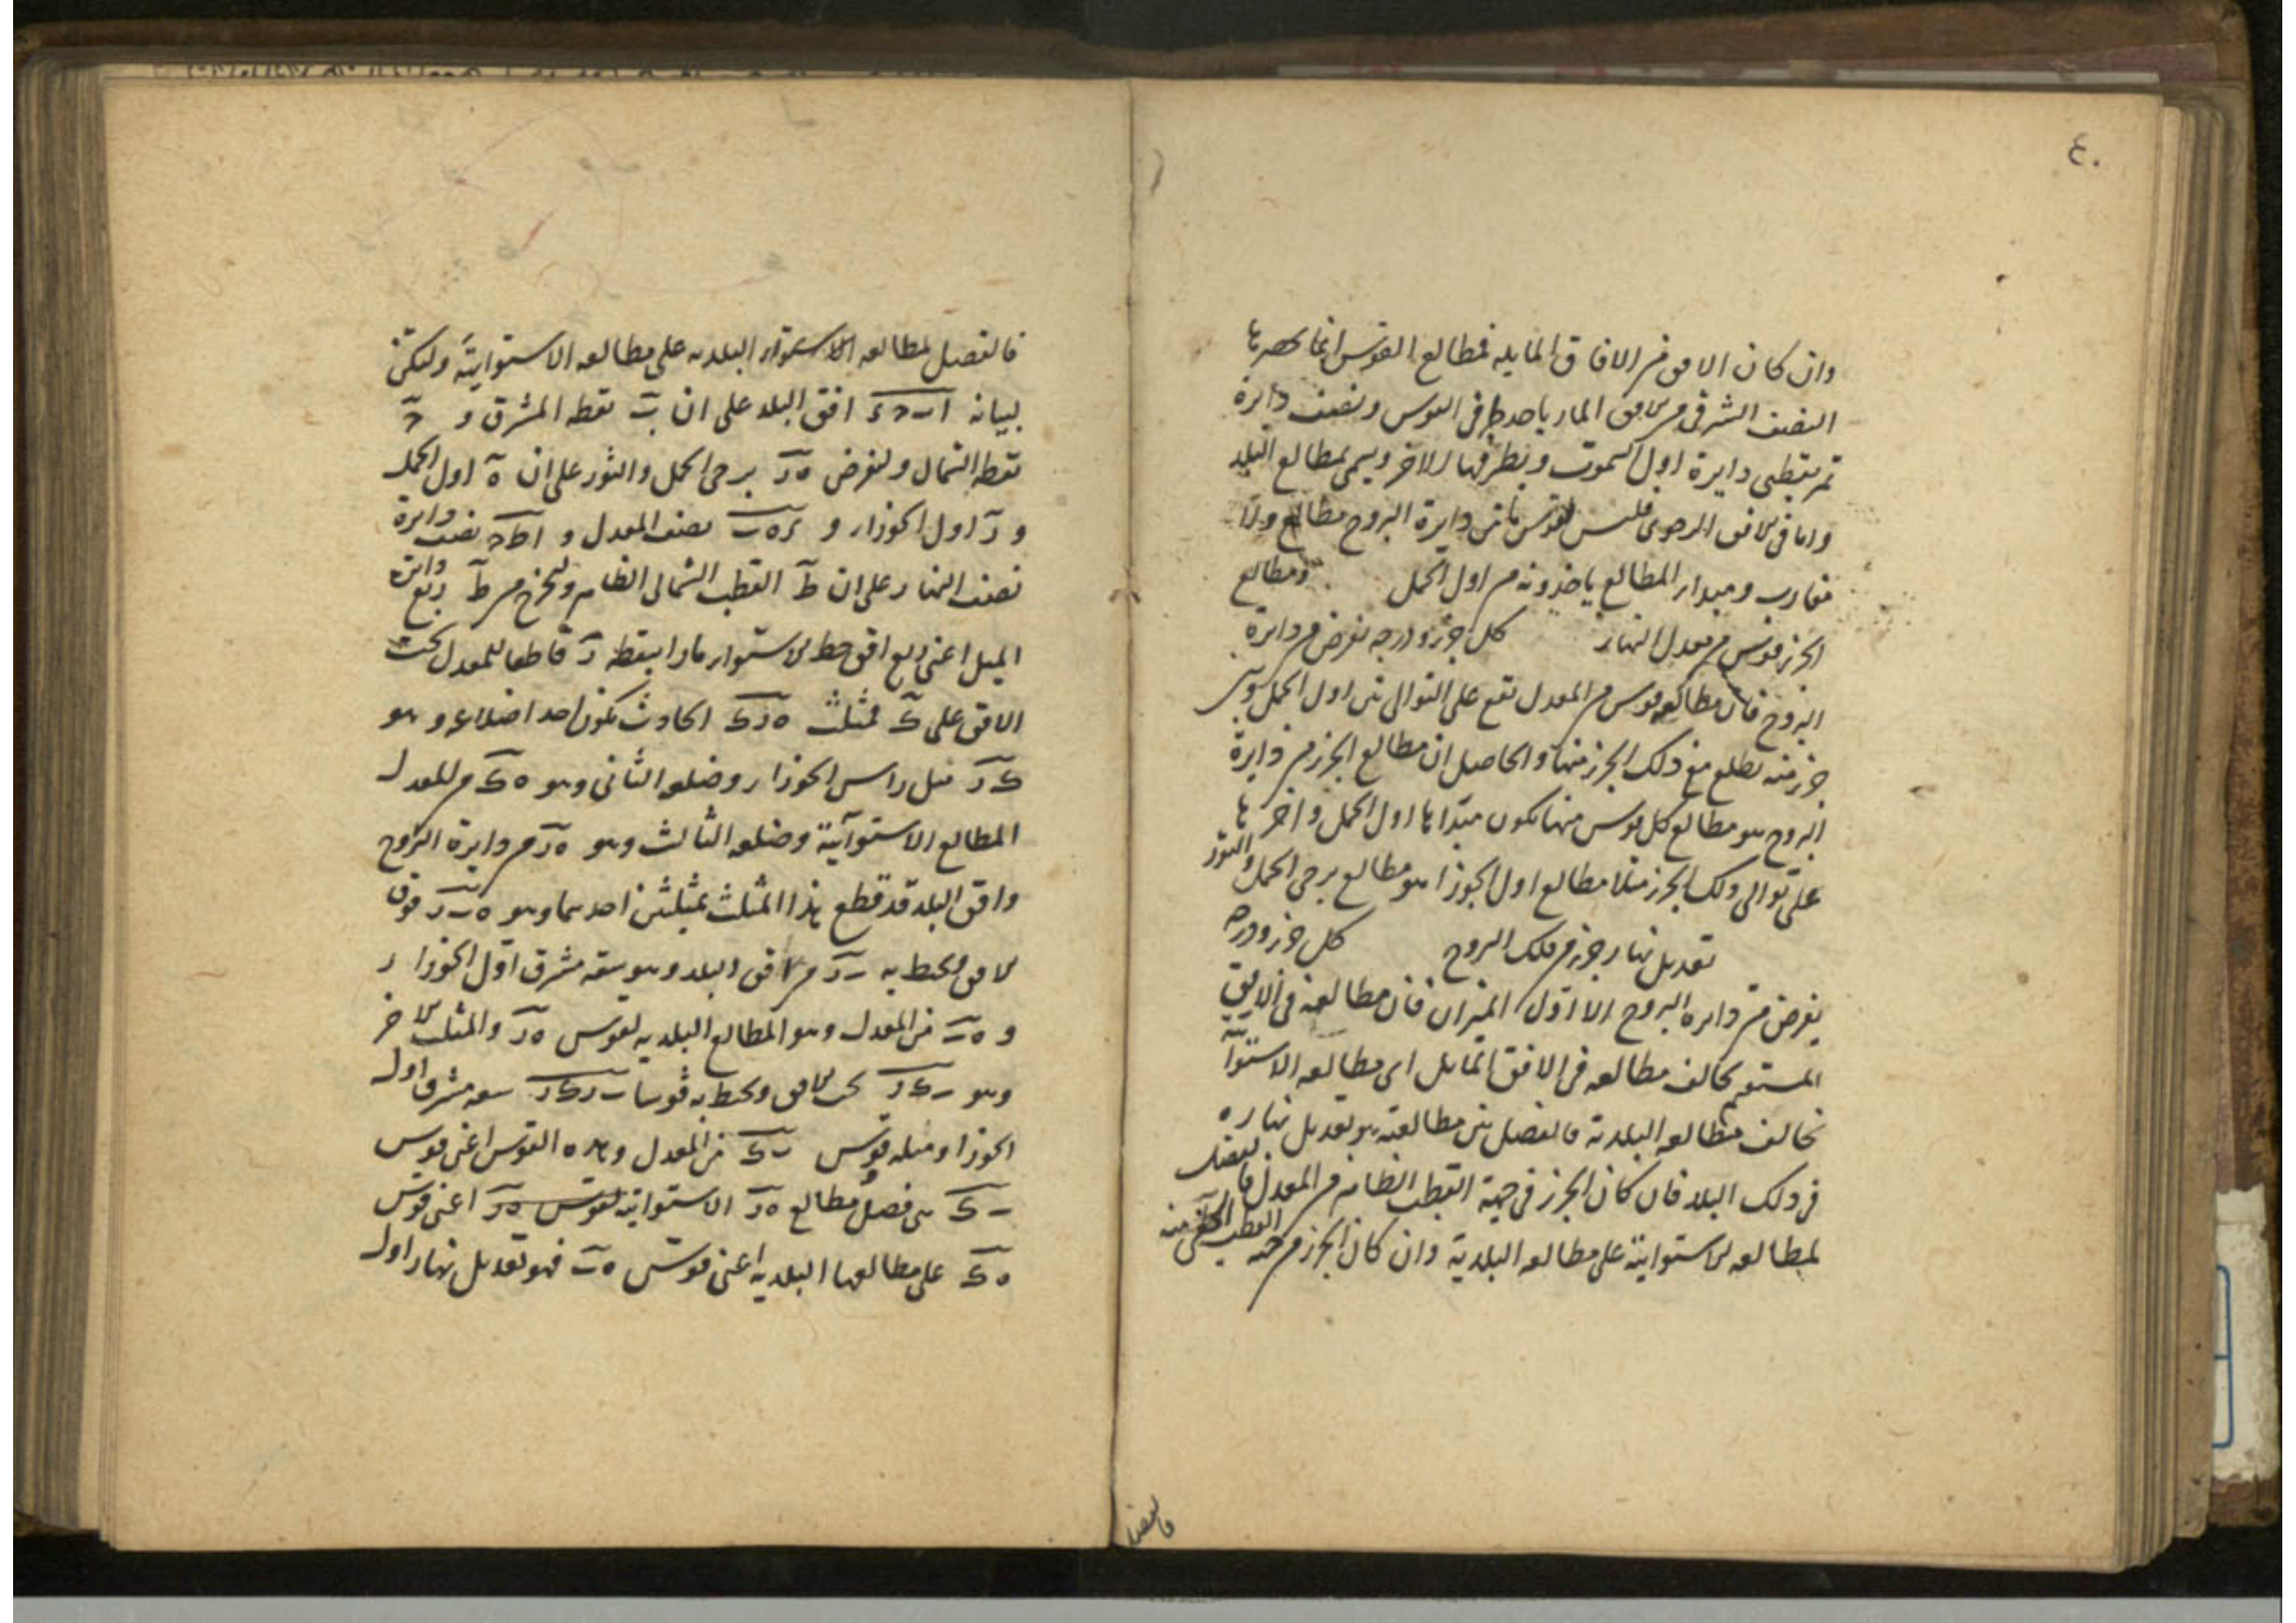 ٤٠
وان كان الافق من الافاق المايله فمطالع القوس انما يحصرها
النصف الشرقى من الافق المار باحد طرفى القوس ونصف دايرة
تمر بقطبى دايرة اول السموت وبطرفها الاخر ويسمى بمطالع البلد
واما فى الافق الرحوى فليس لقوس من دايرة البروج مطالع ولا
مغارب ومبدا المطالع ياخذونه من اول الحمل ومطالع
الجزء قوس من معدل النهار كل جزء ودرجه تفرض من دايرة
البروج فان مطالعه قوس من المعدل تقع على التوالى بين اول الحمل وبين
جزء منه تطلع مع ذلك الجزء منها والحاصل ان مطالع الجزء من دايرة
البروج هو مطالع كل قوس منها تكون مبتداها اول الحمل واخرها
على توالى ذلك الجزء مثلا مطالع اول الجوزا هو مطالع برجى الحمل والثور
تعديل نهار جزء من فلك البروج كل جزء ودرجه
يفرض من دايره البروج الا اول الميزان فان مطالعه فى الافق
المستقيم تخالف مطالعه فى الافق المايل اى مطالعه الاستوآئية
تخالف مطالعه البلدية فالفضل بين مطالعيه هو تعديل نهاره
فى ذلك البلد فان كان الجزء فى جهة القطب الظاهر من المعدل فالفضل
لمطالعه الاستوائية على مطالعه البلدية وان كان الجزء من جهة القطب الخفى منه
فالفضل
فالفضل لمطالعه البلديه على مطالعه الاستوايية وليكن
لبيانه ا ب ح د افق البلد على ان ب نقطه المشرق و ح
نقطه الشمال ولنفرض ه ر برجى الحمل والثور على ان ه اول الحمل
و ر اول الجوزاء و نصف المعدل و ا ط ح نصف دايرة
نصف النهار على ان ط القطب الشمالى الظاهر وليخرج من ط ربع دايرة
الميل اعنى ربع افق خط الاستواء مارا بنقطه ر قاطعا للمعدل تحت
الافق على ك فمثلث ه ر ك الحادث تكون احد اضلاعه وهو
ك ر ميل راس الجوزاء وضلعه الثانى وهو ه ك من المعدل
المطالع الاستوآئية وضلعه الثالث وهو ه ر من دايرة البروج
وافق البلد قد قطع هذا المثلث بمثلثين احدهما وهو ه ب ر فوق
الافق ويحيط به ب ر من افق البلد وهو سعة مشرق اول الجوزاء
و ه ب من المعدل وهو المطالع البلديه لقوس ه ر والمثلث الاخر
وهو ب ك ر تحت الافق ويحيط به قوسا ب ر ك ر سعه مشرق اول
الجوزا وميله وقوس ب ك من المعدل وهذه القوس اعنى قوس
ب ك هى فضل مطالع ه ر الاستوائية لقوس ه ر اعنى قوس
ه ك على مطالعها البلديه اعنى قوس ه ب فهو تعديل نهار اول